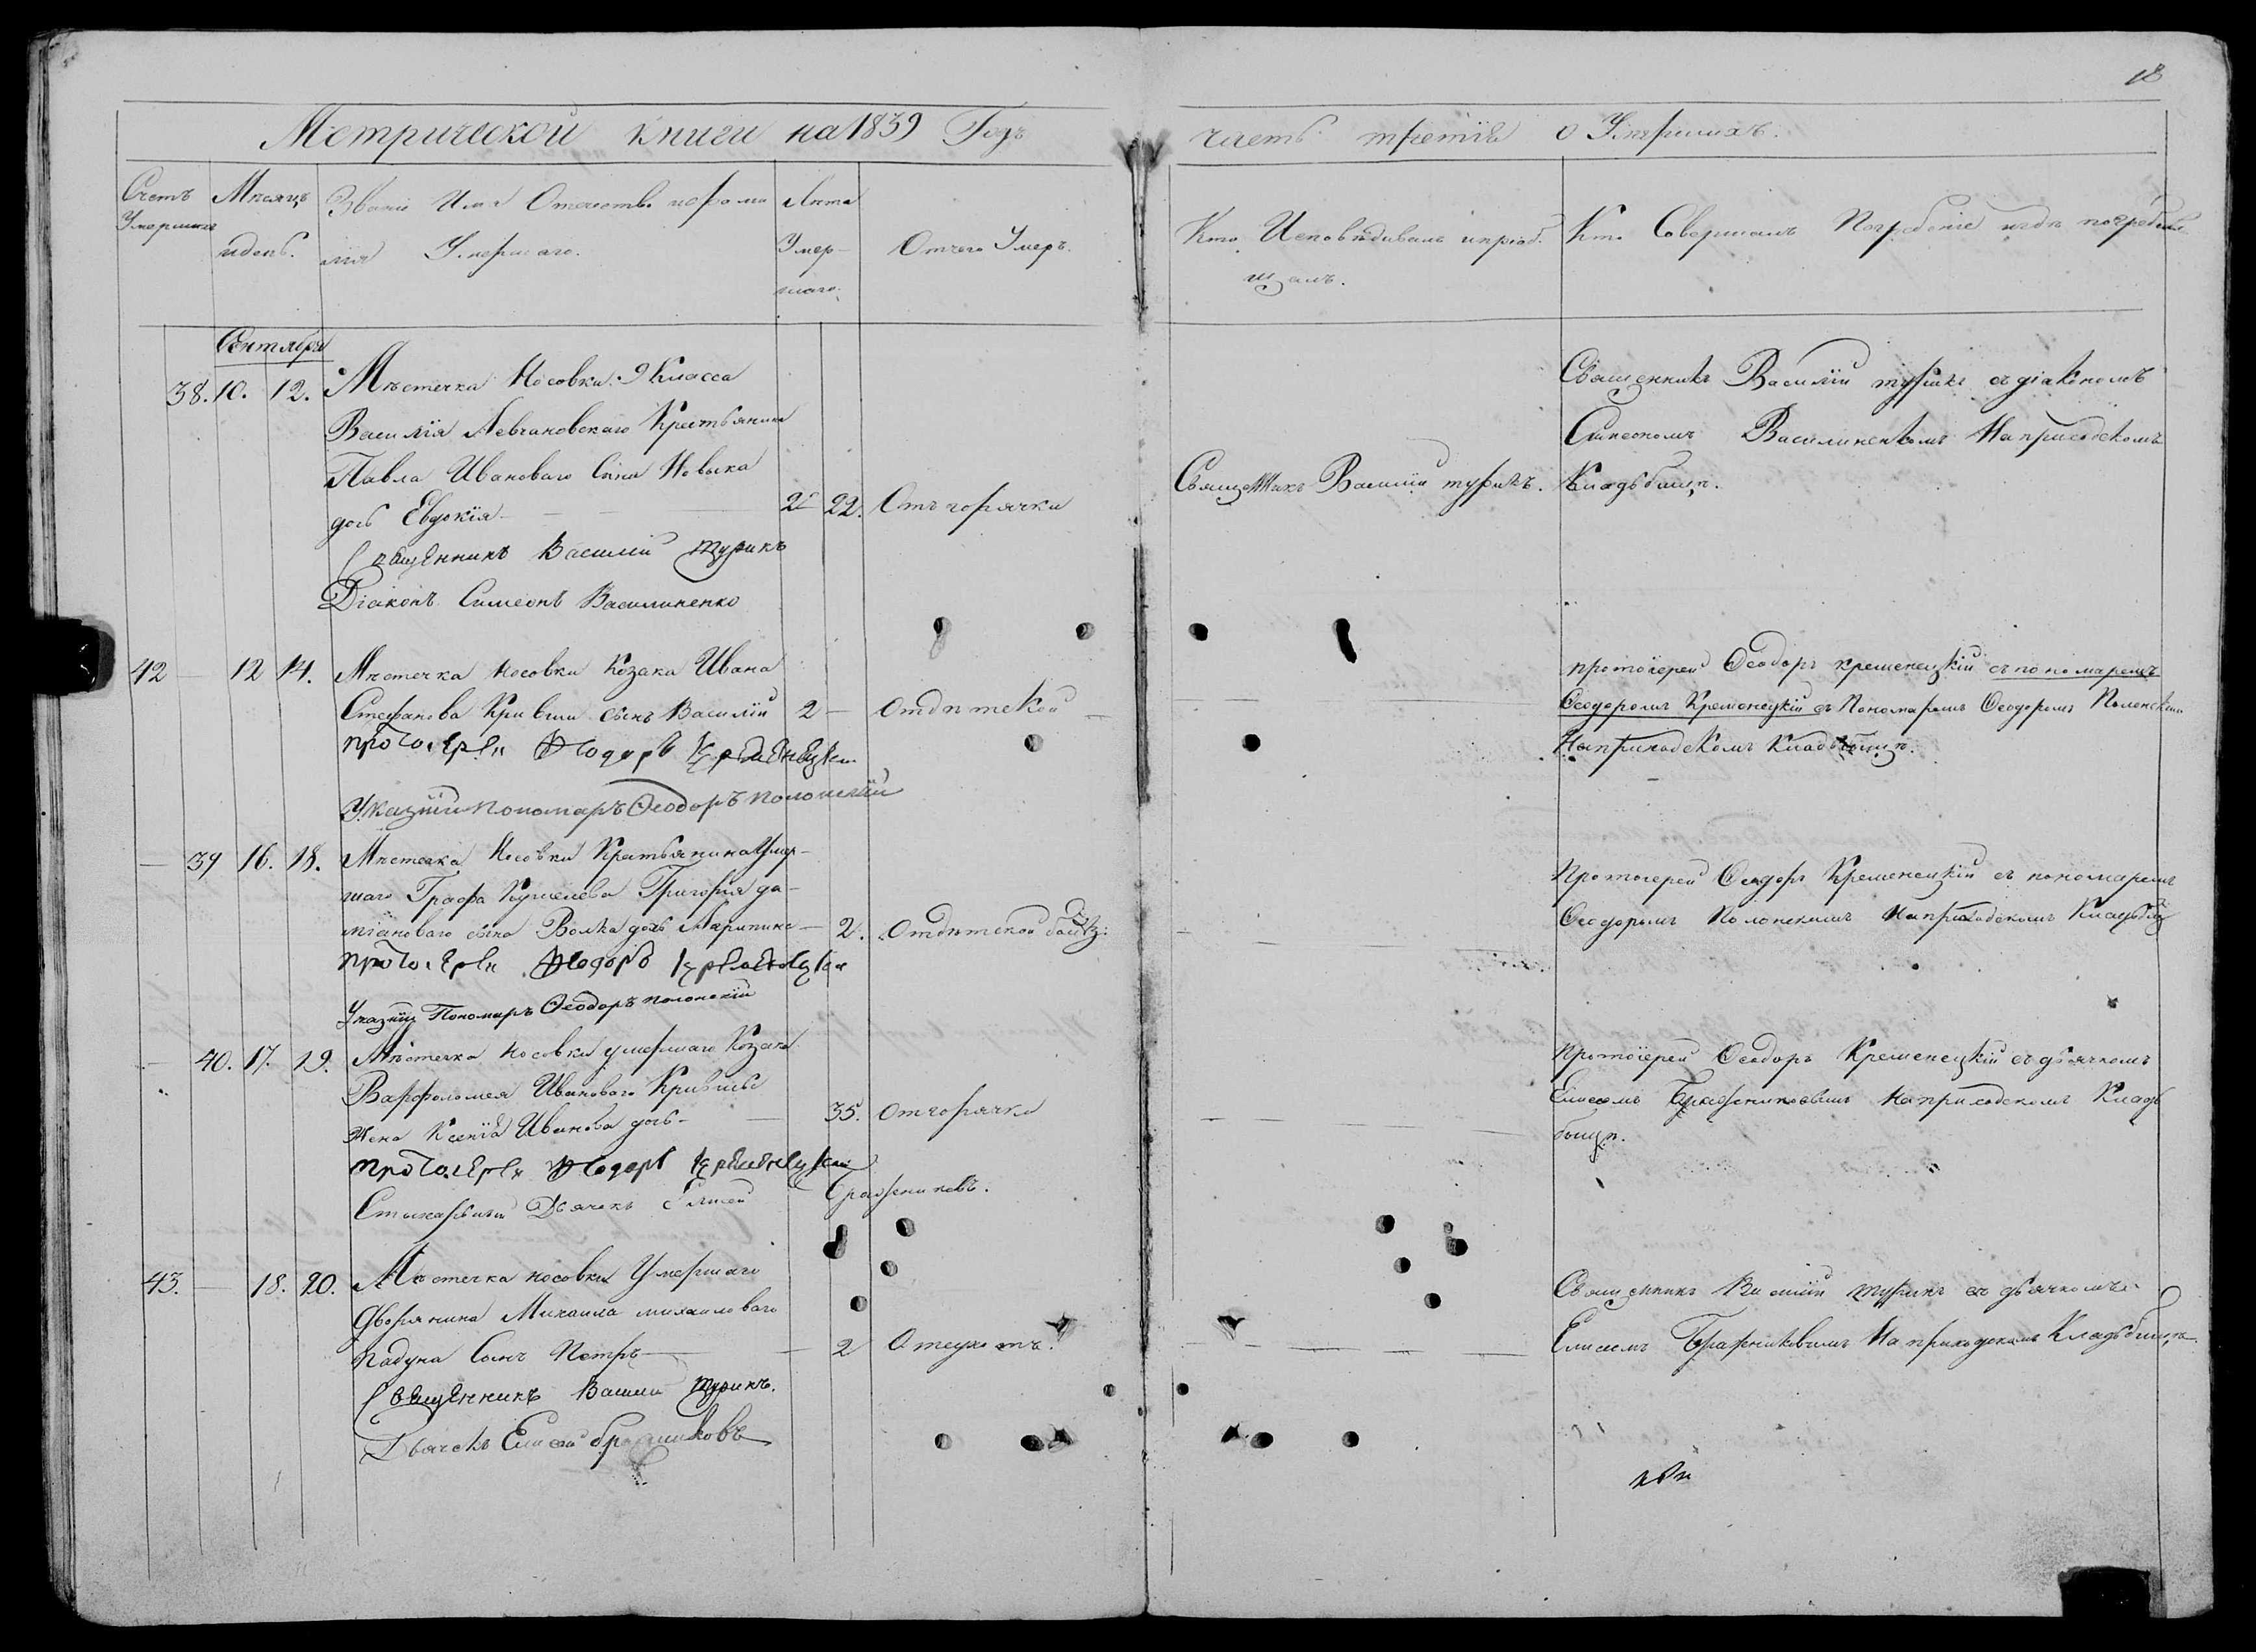 18
Метрической книги на 1839 Годъ часть третія о Умершихъ.
Счетъ Умершихъ
Мѣсяцъ идень.
Званіе Имя Отечество ифами
лія Умершаго.
Лѣта
Умер-
шаго.
Отчего Умеръ.
Кто Исповѣдивалъ ипріоб-
щалъ.
Кто Совершалъ Погребеніе игдѣ погребены
Сентября
38. 10. 12. Мѣстечка Носовки 9 Класса
Василія Левчановскаго Крестьянина
Павла Иванова Сина Новика
дочь Евдокія 22. Отъ горячки
Священникъ Василій турикъ
Діаконъ Симеонъ Василиненко
Священникъ Василій турикъ.
Священникъ Василій турикъ съ діакономъ
Симеономъ Василиненкомъ Наприходскомъ
Кладьбищѣ.
42 12 14. Мѣстечка Носовки Козака Ивана
Стефанова Кривиши сынъ Василій 2 — Отдѣтской
протоіерей Ѳеодоръ Кременецкій
Указній пономаръ Ѳеодоръ полонскій
протоіерей Ѳеодоръ кременецкій съ пономаремъ
Ѳеодоромъ Кременецкій съ Пономаромъ Ѳеодоромъ Полонскимъ
Наприходскомъ Кладьбищѣ.
— 39 16. 18. Мѣстечка Носовки Крестьянина Умер-
шаго Графа Кушелева Григорія да-
міановаго сына Волка дочь — 2. Отдѣтской
протоіерей Ѳеодоръ Кременецкій
Указній Пономаръ Ѳеодоръ полонскій
Протоіерей Ѳеодоръ Кременецкій съ пономаремъ
Ѳеодоромъ Полонскимъ Наприходскомъ
— 40. 17. 19. Мѣстечка Носовки умершаго Козака
Варфоломея Иванового Кривиши
Жена Ксенія Иванова дочь — 35. Отгорячки
протоіерей Ѳеодоръ Кременецкій
Дьячекъ Елисей Бражниковъ.
Протоіерей Ѳеодоръ Кременецкій съ дьячкомъ
Елисеемъ Бражниковымъ Наприходскомъ Кладь
бищѣ.
43. — 18. 20. Мѣстечка Носовки Умершаго
дворянина Михаила михаиловаго
Падуна Сынъ Петръ — 2
Священникъ Василій Турикъ.
Дьячекъ Елисей бражниковъ
Священникъ Василій турикъ съ дьячкомъ
Елисеемъ Бражниковымъ Наприходскомъ Кладьбищѣ.